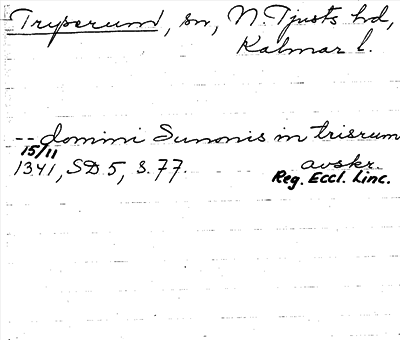 Tryserum, sn, N. Tjusts hd,
Kalmar l.
-- domini Sunonis in trisrum
15/11
1341, SD 5, s. 77. avskr.
Reg. Eccl. Linc.